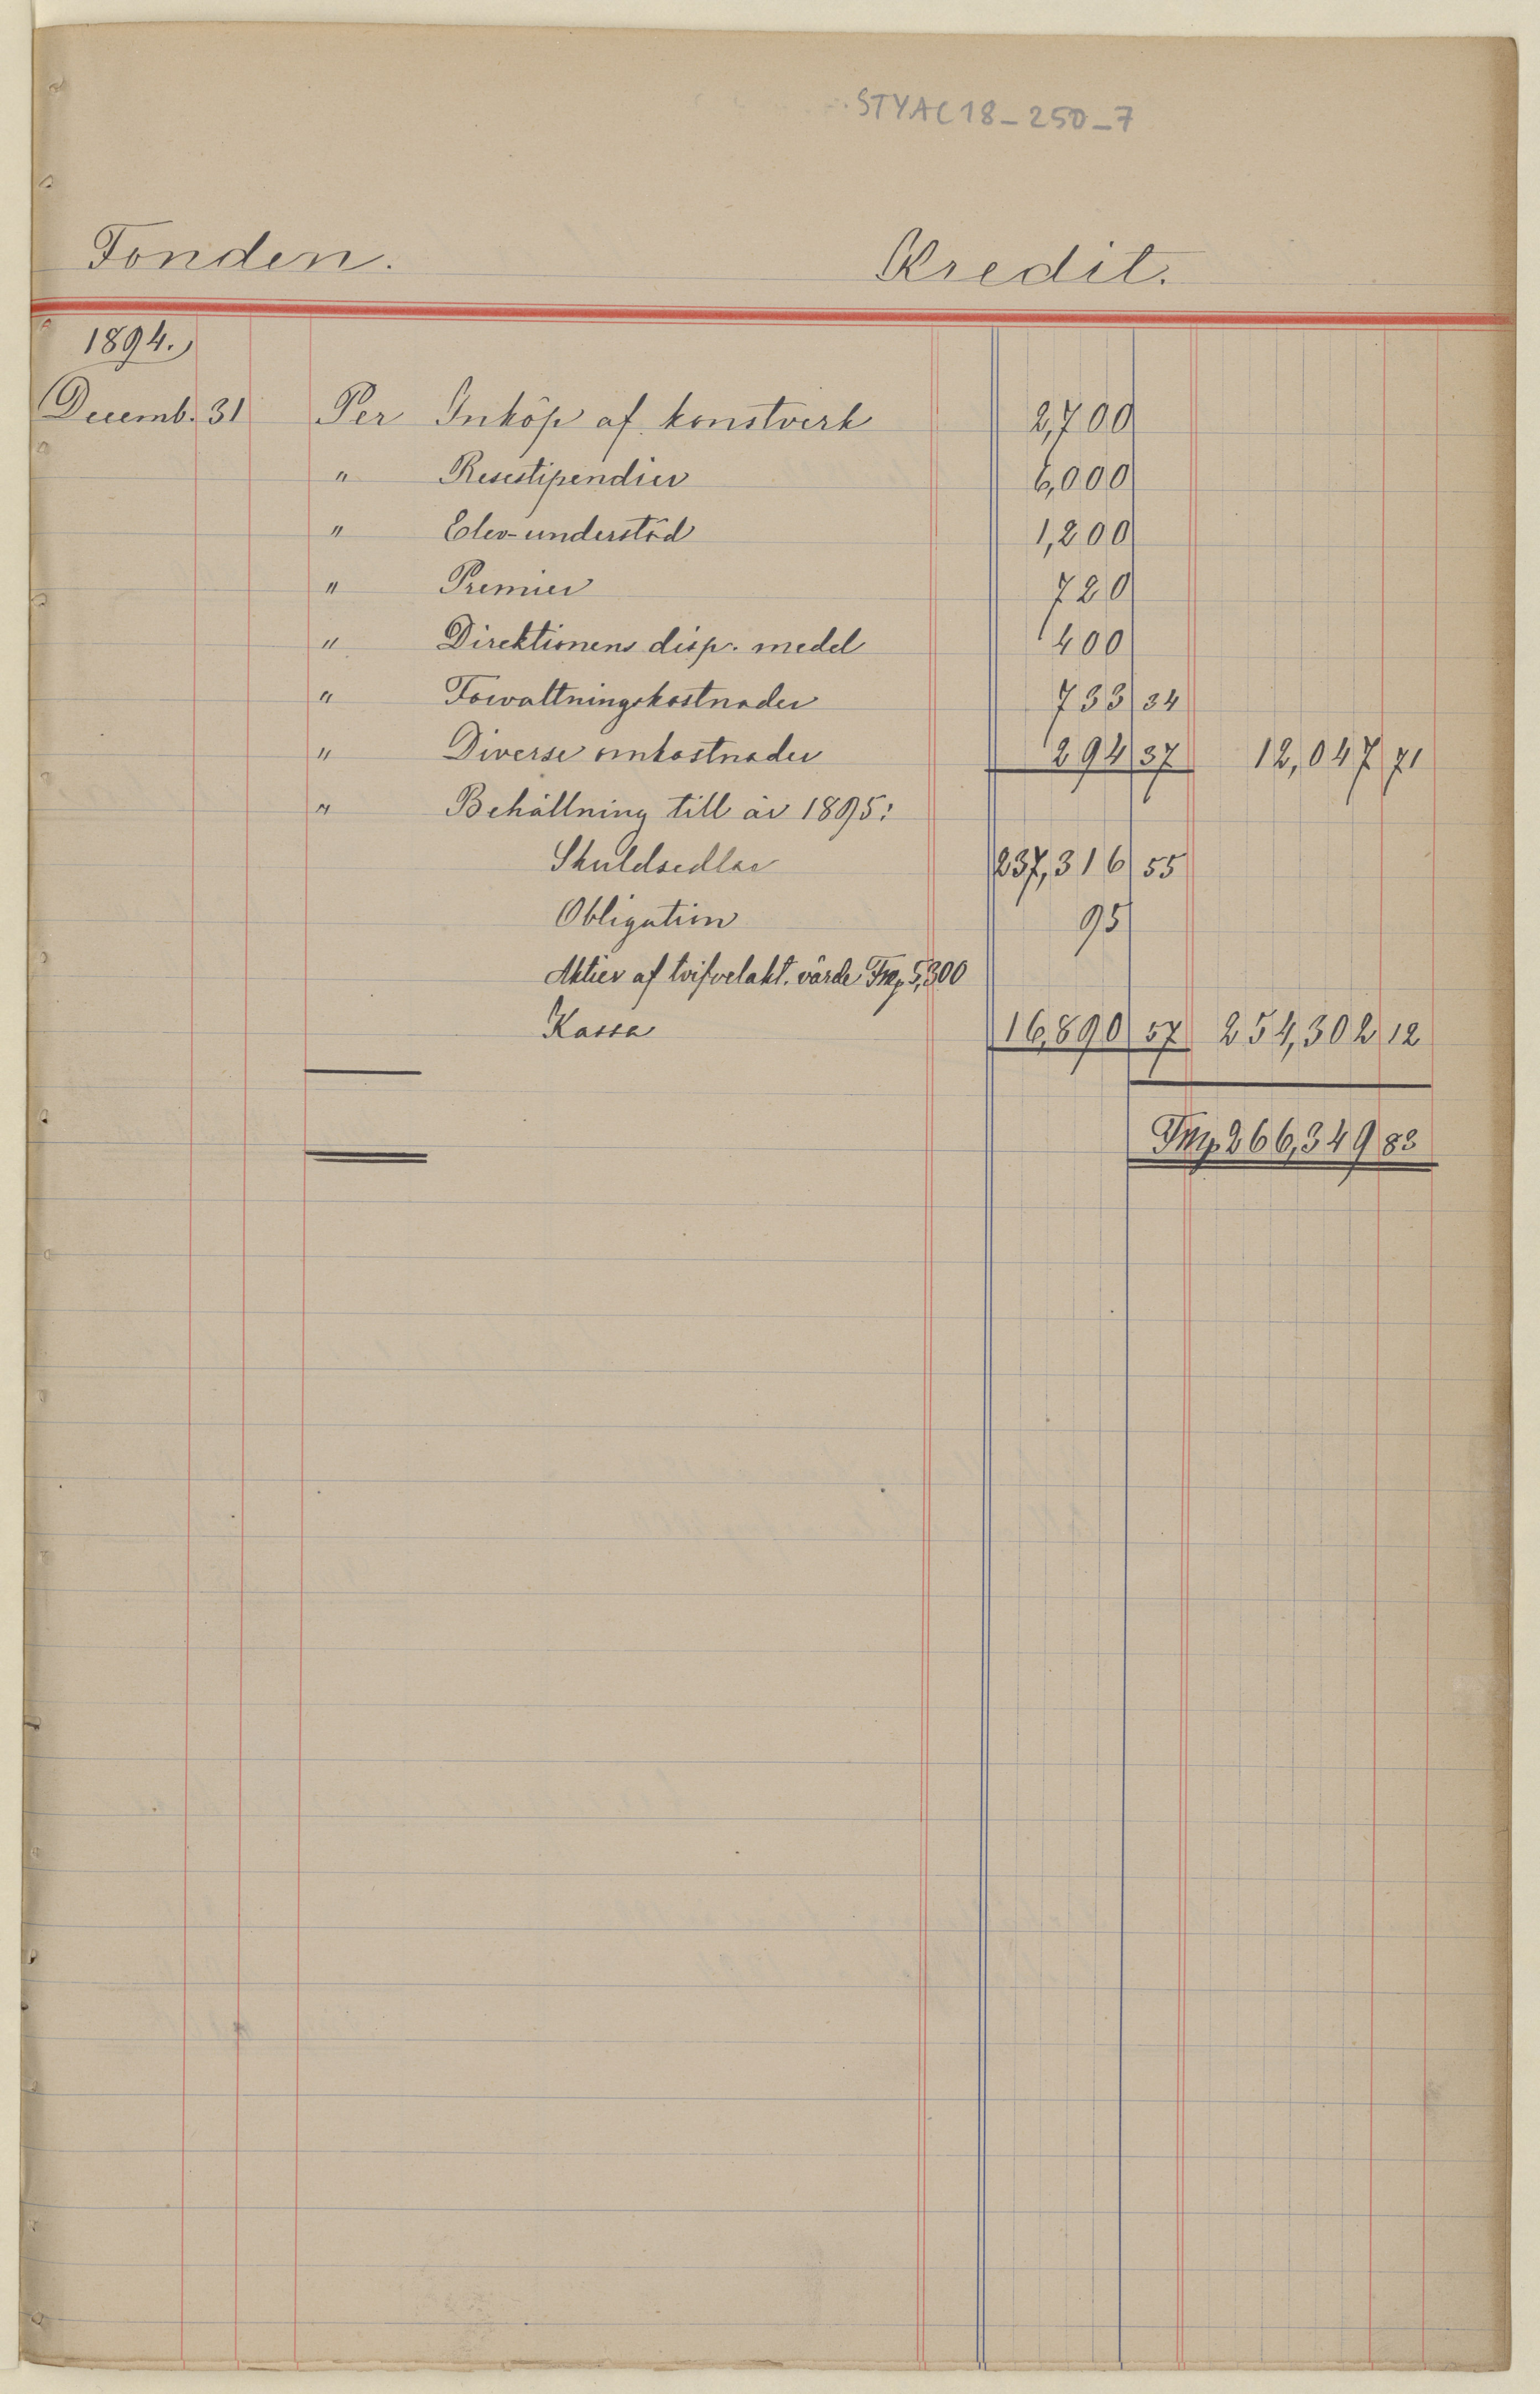 STYAC18_250_7
Fonden. Kredit.
1894.
Decemb. 31 Per Inköp af konstverk 2,700
" Resestipendier 6,000
" Elev-understöd 1,200
" Premier 720
" " Direktionens disp. medel 400
" Förvaltningskostnader 733 34
" Diverse omkostnader 294 37 12,047 71
" Behållning till år 1895:
Skuldsedlar 237,316 55
Obligation 95
Aktier af tvifvelakt. värde Fmk 5,300
Kassa 16,890 57 254,302 12
Fmk 266,349 83